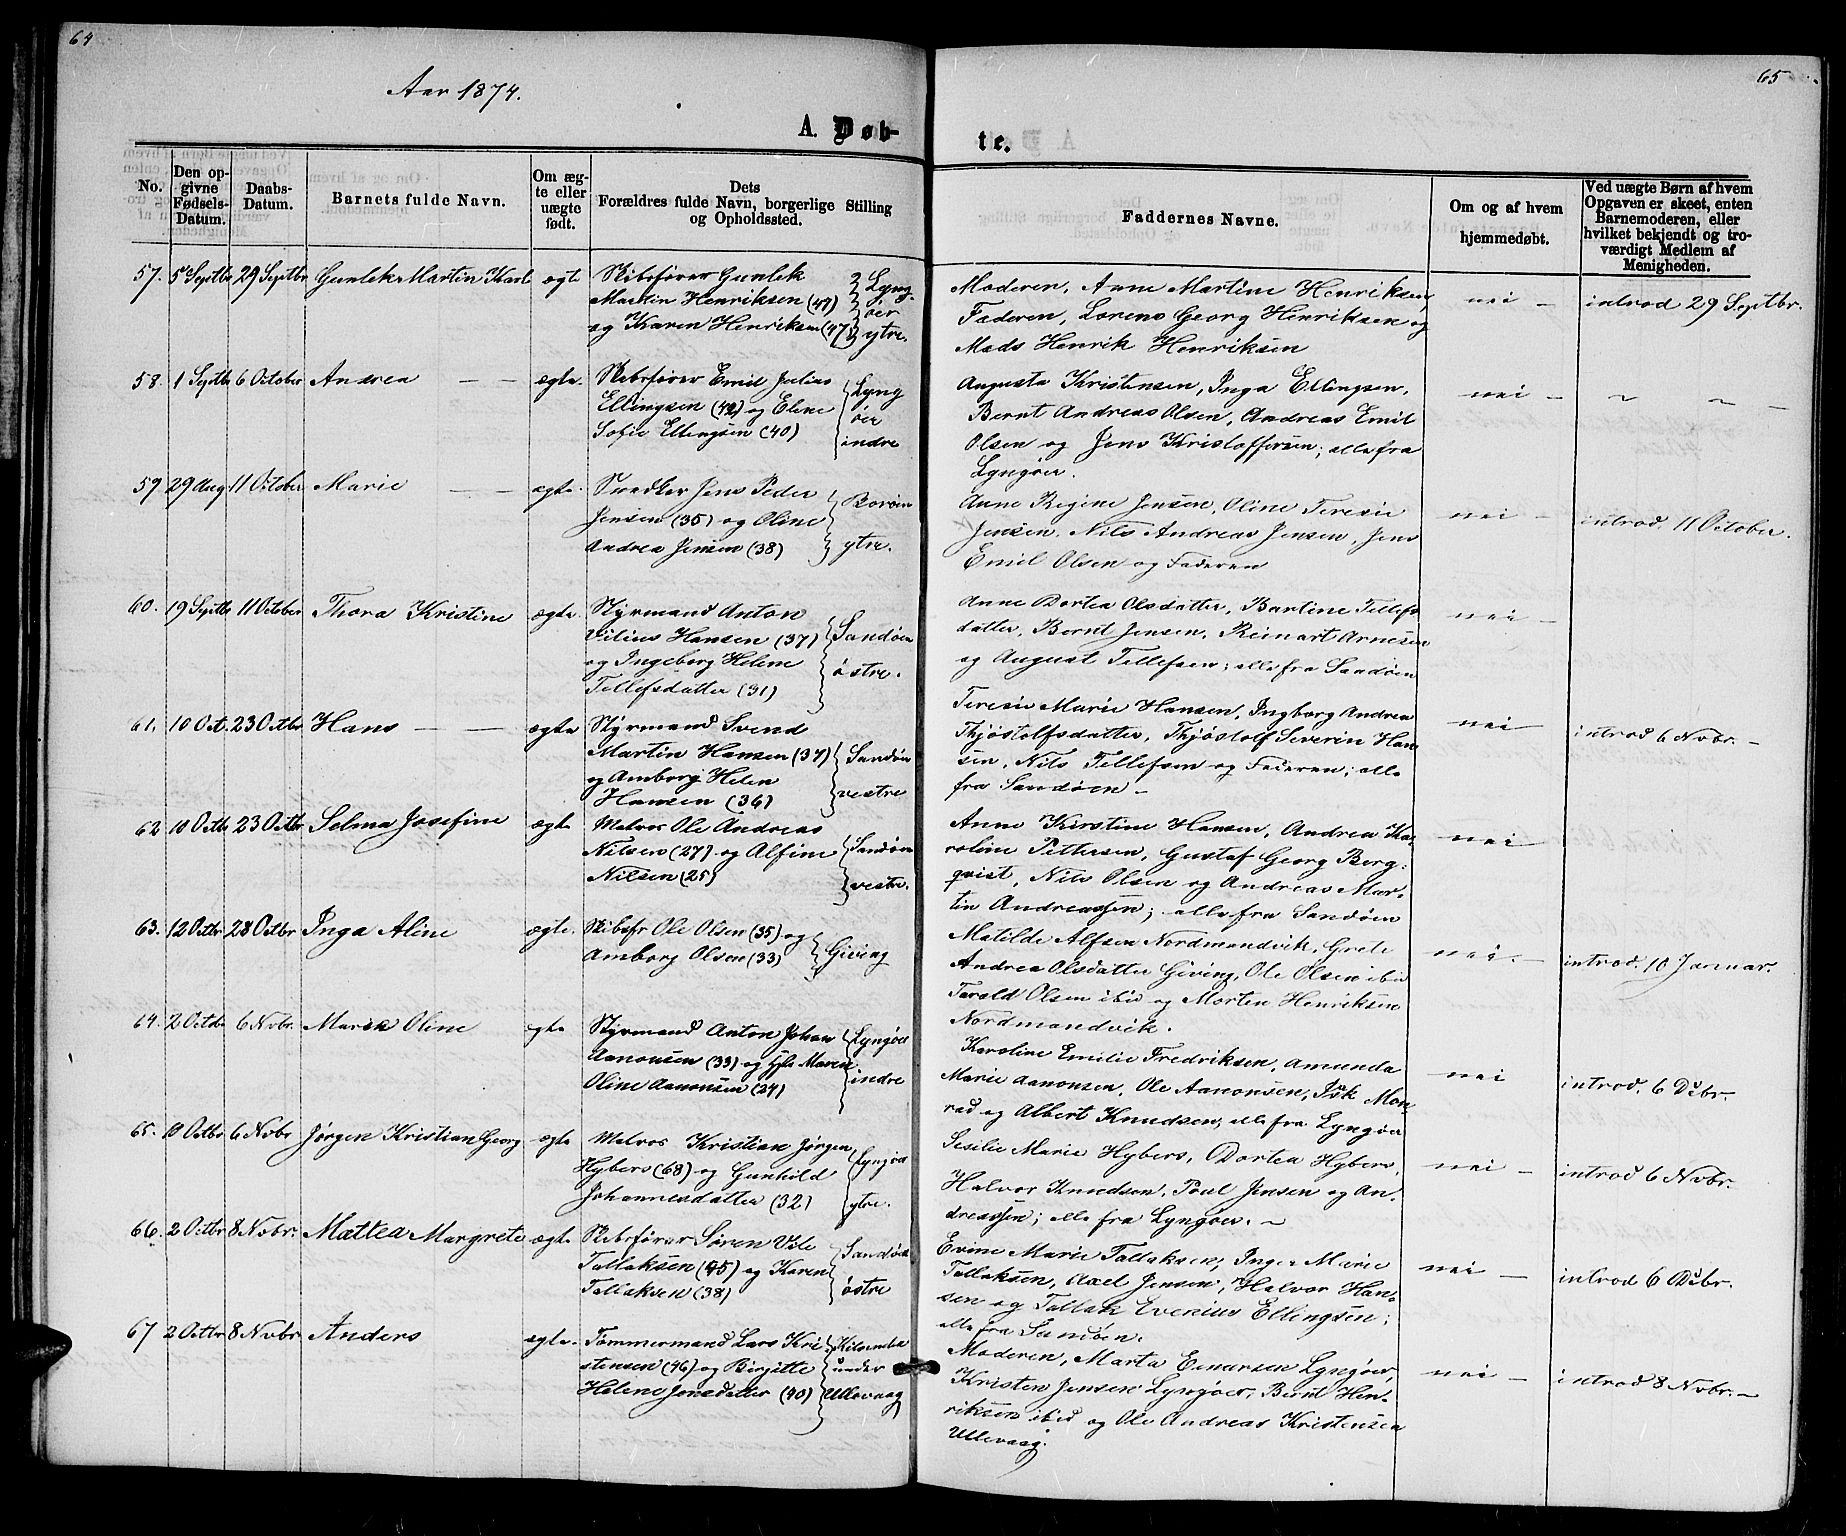 64
65
Aar 1874.
A. Døb-
te.
No.
Den op-
givne
Fødsels-
Datum.
Daabs-
Datum.
Barnets fulde Navn.
Om æg-
te eller
uægte
født.
Dets
Forældres fulde Navn, borgerlige Stilling
og Opholdssted.
Faddernes Navne.
Om og af hvem
hjemmedøbt.
Ved uægte Børn af hvem
Opgaven er skeet, enten
Barnemoderen, eller
hvilket bekjendt og tro-
værdigt Medlem af
Menigheden.
57. 5 Septbr 29 Septbr Gunlek Martin Karl ægte
Skibsfører Gunlek
Martin Henriksen (47)
og Karen Henriksen (47)
Lyng-
öer
ytre.
Moderen, Anne Martine Henriksen,
Faderen, Lorens Georg Henriksen og
Mads Henrik Henriksen
nei — introd 29 Septbr.
58. 1 Septbr 6 October Andrea — — ægte.
Skibsfører Emil Julius
Ellingsen (42) og Eline
Sofie Ellingsen (40)
Lyng
öer
indre
Augusta Kristensen, Inga Ellingsen,
Bernt Andreas Olsen, Andreas Emil
Olsen og Jens Kristoffersen; alle fra
Lyngöer.
nei — ~ ~ —
59 29 Aug 11 October Marie — — ægte.
Snedker Jens Peder
Jensen (35) og Oline
Andrea Jensen (38)
Boröen
ytre.
Anne Regine Jensen, Oline Teresie
Jensen, Nils Andreas Jensen, Jens
Emil Olsen og Faderen
nei — introd. 11 October.
60. 19 Septbr 11 October Thora Kristine ægte.
Styrmand Anton
Vilius Hansen (37)
og Ingeborg Helene
Tellefsdatter (31)
Sandöen
östre.
Anne Dortea Olsdatter, Bertine Tellefs
datter, Bernt Jensen, Reinart Arnesen
og August Tellefsen; alle fra Sandöen
nei —
61. 10 Oct. 23 Octbr Hans — — ægte
Styrmand Svend
Martin Hansen (37)
og Amborg Helen
Hansen (36)
Sandöen
vestre
Teresie Marie Hansen, Ingborg Andrea
Thjöstolfsdatter, Thjöstolf Severin Han
sen, Nils Tellefsen og Faderen; alle
fra Sandöen —
nei — introd 6 Novbr. —
62 10 Octbr 23 Octbr Selma Josefine ægte
Matros Ole Andreas
Nilsen (27) og Alfine
Nilsen (25)
Sandöen
vestre.
Anne Kirstine Hansen, Andrea Ka-
roline Pettersen, Gustaf Georg Berg-
qvist, Nils Olsen og Andreas Mar-
tin Andreassen; alle fra Sandöen
nei —
63. 12 Octbr 28 Octbr Inga Aline ægte.
Skibsfr Ole Olsen (35) og
Amborg Olsen (33)
Giving
Matilde Alfsen Nordmandvik, Grete
Andrea Olsdatter Giving, Ole Olsen ibid
Tarald Olsen ibid og Morten Henriksen
Nordmandvik.
nei. — introd. 10 Januar.
64. 2 Octbr 6 Nvbr. Maren Oline ægte
Styrmand Anton Johan
Aanonsen (33) og Maren
Oline Aanonsen (24)
Lyngöer
indre
Karoline Emilie Fredriksen, Amunda
Marie Aanonsen, Ole Aanonsen, Isk Mon-
rad og Albert Knudsen, alle fra Lyngöer
nei introd. 6 Debr.
65. 10 Octbr 6 Nvbr Jörgen Kristian Georg ægte
Matros Kristian Jörgen
Hybers (68) og Gunhild
Johannesdatter (32)
Lyngöer
ytre.
Sesilie Marie Hybers, Dortea Hybers,
Halvor Knudsen, Poul Jensen og An-
dreassen; alle fra Lyngöer. ~
nei — introd 6 Nvbr.
66. 2 Octbr 8 Nvbr. Mattea Margrete ægte
Skibsfører Sören Vile
Tallaksen (45) og Karen
Tallaksen (38)
Sandöen
östre
Evine Marie Tallaksen, Inger Marie
Tallaksen, Axel Jensen, Halvor Han-
sen og Tallak Evenius Ellingsen;
alle fra Sandöen.
nei — introd 6 Debr.
67 2 Octbr 8 Nvbr. Anders ægte.
Tømmermand Lars Kri
stensen (46) og Birgitte
Helene Jonsdatter (40)
under
Ullevaag
Moderen, Marta Einersen Lyngöer,
Kristen Jensen Lyngöer, Bernt Hen-
riksen ibid og Ole Andreas Kristensen
Ullevaag.
nei — introd 8 Nvbr. —